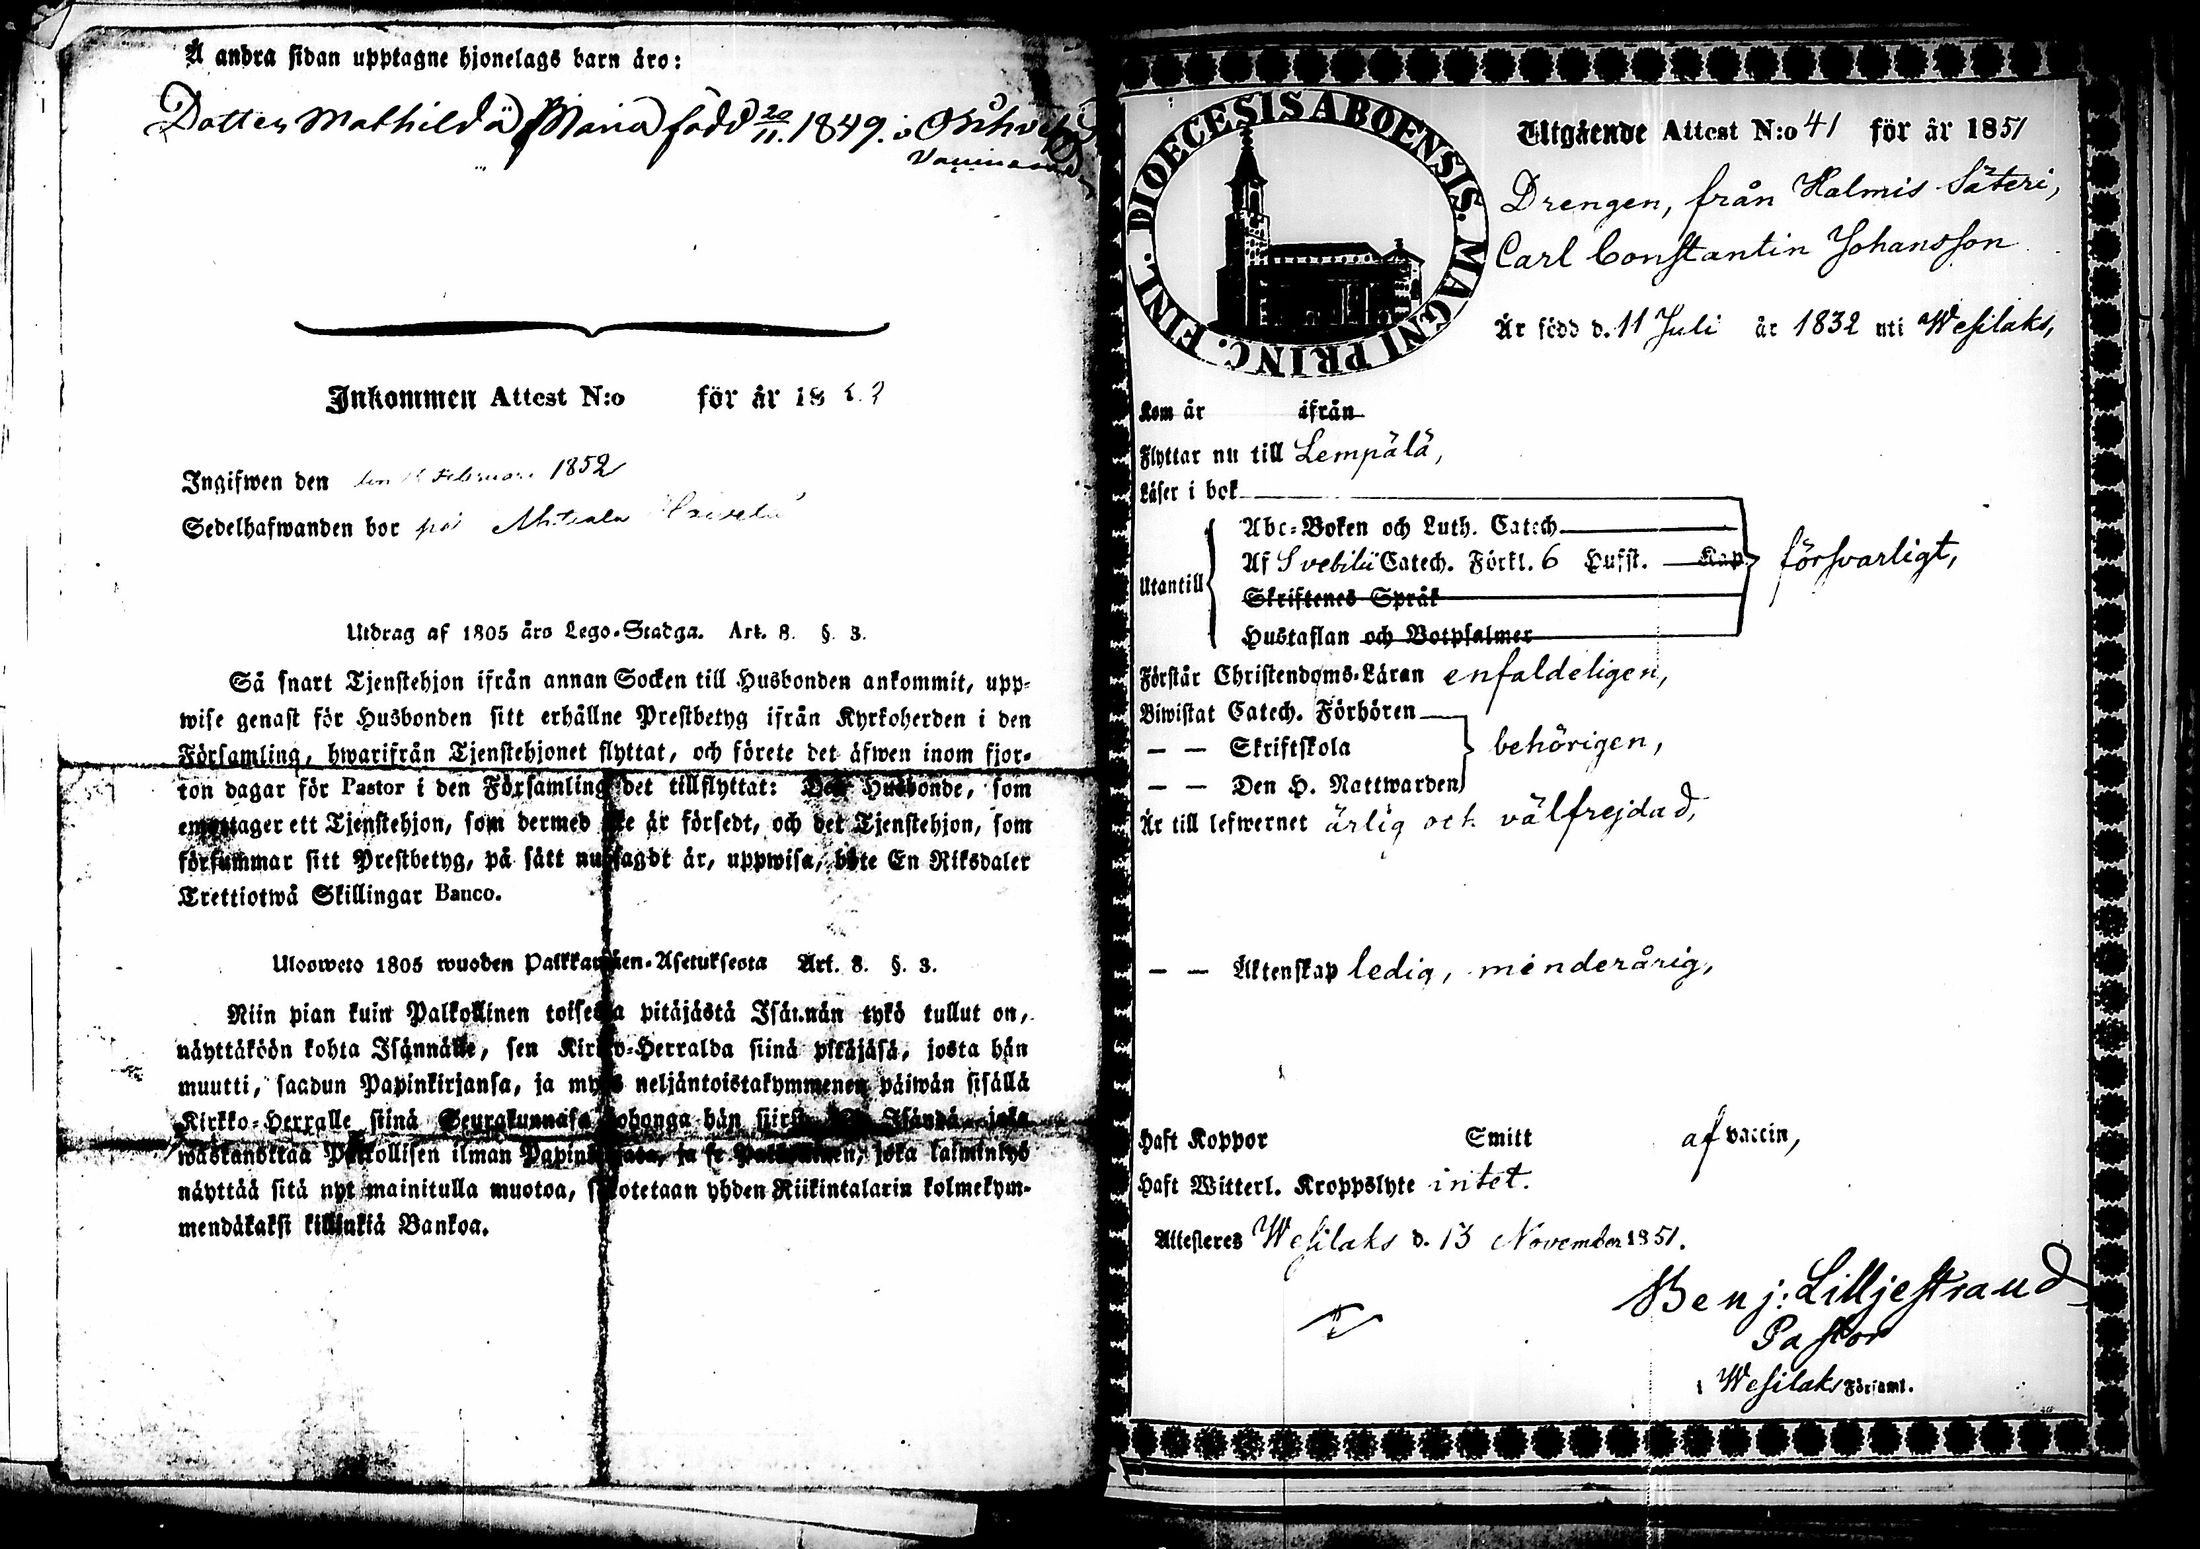 Å andra sidan upptagne hjonelags barn äro:
Dotter Mathilda Maria född 20/11. 1849. i
Inkommen Attest N:o för år 18
Ingifwen den den Februari 1852
Sedelhafwanden bor på
Utdrag af 1805 års Lego-Stadga. Art. 8. §. 3.
Så snart Tjenstehjon ifrån annan Socken till Husbonden ankommit, upp-
wise genast för Husbonden sitt erhållne Prestbetyg ifrån Kyrkoherden i den
Församling, hwarifrån Tjenstehjonet flyttat, och förete det äfwen inom fjor-
ton dagar för Pastor i den Församling det tillflyttat: Den Husbonde, som
emottager ett Tjenstehjon, som dermed icke är försedt, och det Tjenstehjon, som
försummar sitt Prestbetyg, på sätt nu sagdt är, uppwisa, böte En Riksdaler
Trettiotwå Skillingar Banco.
Ulosweto 1805 wuoden Palkkawäen-Asetuksesta Art. 8. §. 3.
Niin pian kuin Palkollinen toisesta pitäjästä Isännän tykö tullut on,
näyttäköön kohta Isännälle, sen Kirkko-Herralda siinä pitäjäsä, josta hän
muutti, saadun Papinkirjansa, ja myös neljäntoistakymmenen päiwän sisällä
Kirkko-Herralle siinä Seurakunnasa johonga hän siirsi Isändä, joka
wastanottaa Palkollisen ilman Papinkirjata, ja se Palkollinen, joka laiminlyö
näyttää sitä nyt mainitulla muotoa, sakotetaan yhden Riikintalarin kolmekym-
mendäkaksi killinkiä Bankoa.
DIOECESIS ABOENSIS. MAGNI PRINC. FINL.
Utgående Attest N:o 41 för år 1851
Drengen, från Halmis Säteri,
Carl Constantin Johansson
Är född d. 11 Juli år 1832 uti Wesilaks,
Kom år ifrån
Flyttar nu till Lempälä,
Läser i bok
Abc-Boken och Luth. Catech.
Utantill Af Svebilii Catech. Förkl. 6 Hufst. Kap. försvarligt,
Skriftenes Språk
Hustaflan och Botpsalmer
Förstår Christendoms-Läran enfaldeligen,
Biwistat Catech. Förhören
— — Skriftskola behörigen,
— — Den H. Nattwarden
Är till lefwernet ärlig och välfrejdad,
— — Äktenskap ledig, minderårig,
Haft Koppor Smitt af vaccin,
Haft Witterl. Kroppslyte intet.
Attesteres Wesilaks d. 13 November 1851.
Benj: Lilljestrand
Pastor
i Wesilaks Församl.